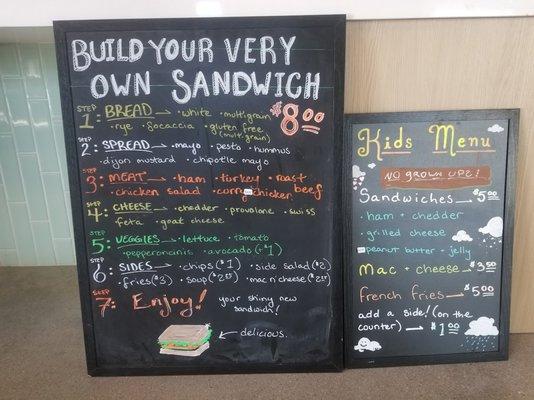 BUILD YOUR VERY
OWN SANDWICH
$8.00
STEP 1: BREAD → • white • multigrain
• rye • focaccia • gluten free
(multigrain)
STEP 2: SPREAD → • mayo • pesto • hummus
• dijon mustard • chipotle mayo
STEP 3: MEAT → • ham • turkey • roast beef
• chicken salad • curry chicken
STEP 4: CHEESE → • chedder • provolone • swiss
feta • goat cheese
STEP 5: VEGGIES → • lettuce • tomato
• pepperoncinis • avocado (+$1)
STEP 6: SIDES → • chips ($1) • side salad ($2)
• fries ($3) • soup
• mac n' cheese
STEP 7: Enjoy! your shiny new
sandwich!
← delicious.
Kids Menu
NO GROWN UPZ!
Sandwiches → $5.00
• ham + chedder
• grilled cheese
peanut butter + jelly
Mac + cheese → $3.50
French fries → $5.00
add a side! (on the
counter) → $1.00